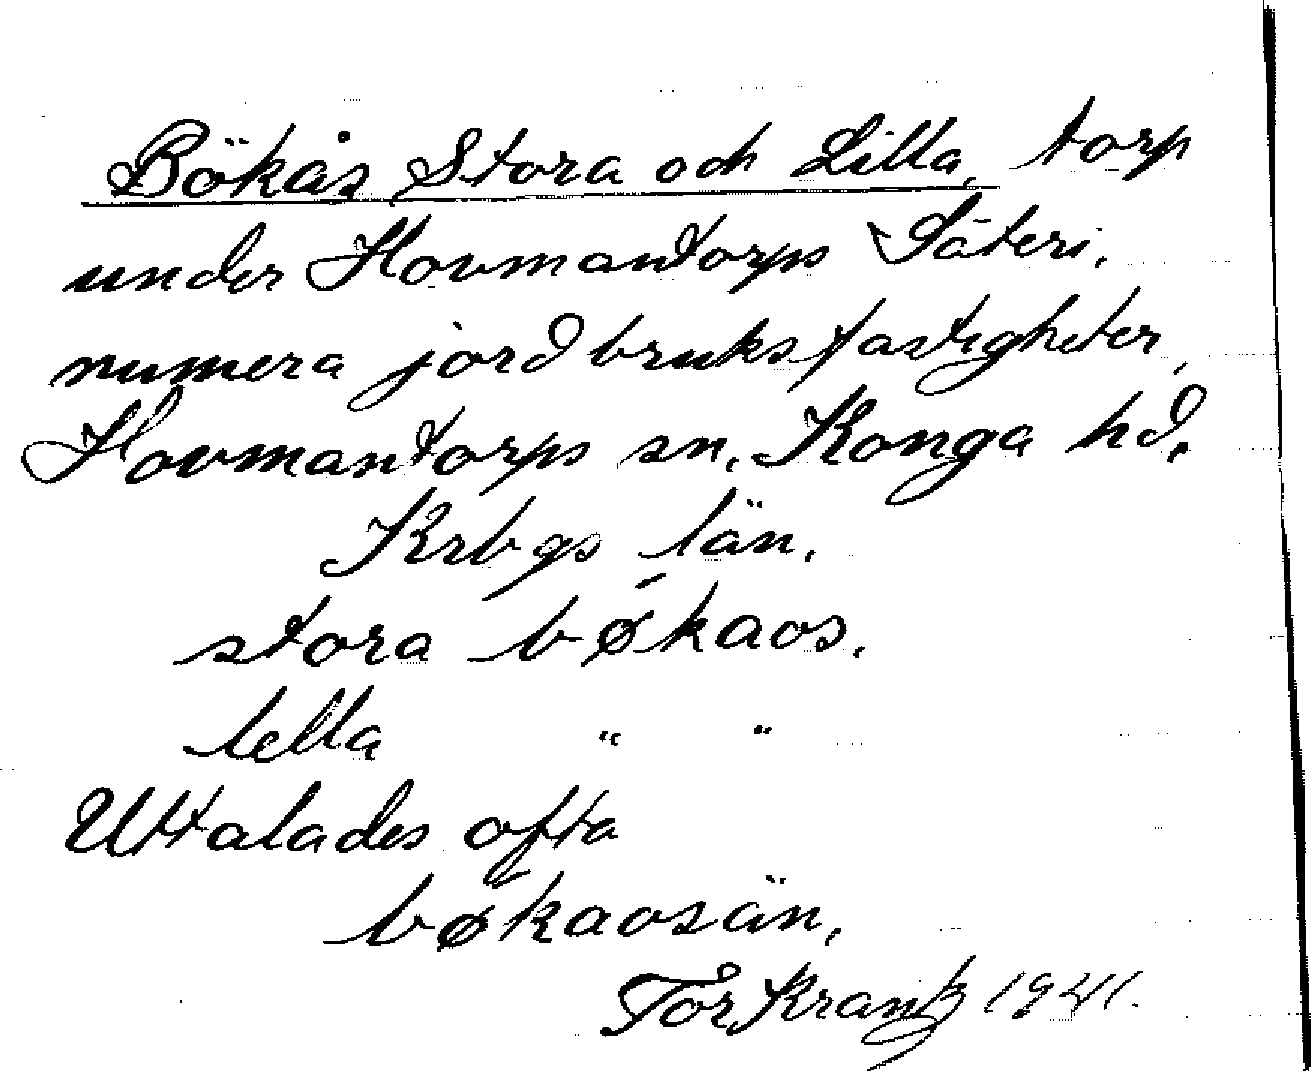 Bökås Stora och Lilla, torp
under Hovmantorps Säteri,
numera jordbruksfastigheter,
Hovmantorps sn, Konga hd,
Krbgs län.
stora bǿkaos.
lella " "
Uttalades ofta
bǿkaosän,
Tor Krantz 1941.